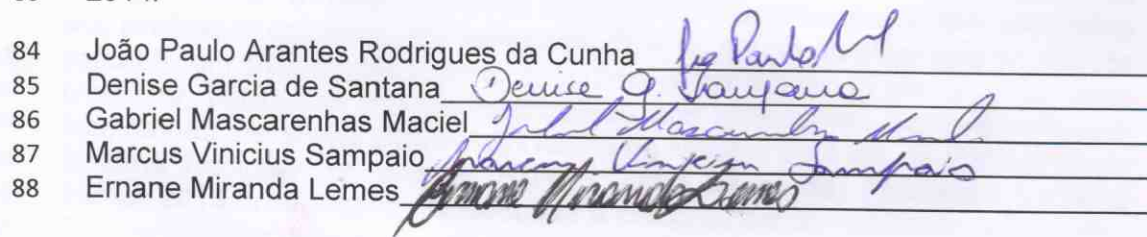 84 João Paulo Arantes Rodrigues da Cunha João Paulo
85 Denise Garcia de Santana Denise G. Santana
86 Gabriel Mascarenhas Maciel Gabriel Mascarenhas Maciel
87 Marcus Vinicius Sampaio Marcus Vinicius Sampaio
88 Ernane Miranda Lemes Ernane Miranda Lemes